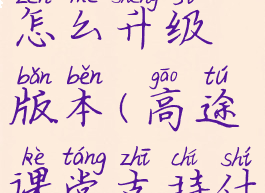 zěn me shēng jí
怎么升级
bǎn běn gāo tú
版本(高途
kè táng zhī chí shí
课堂支持什